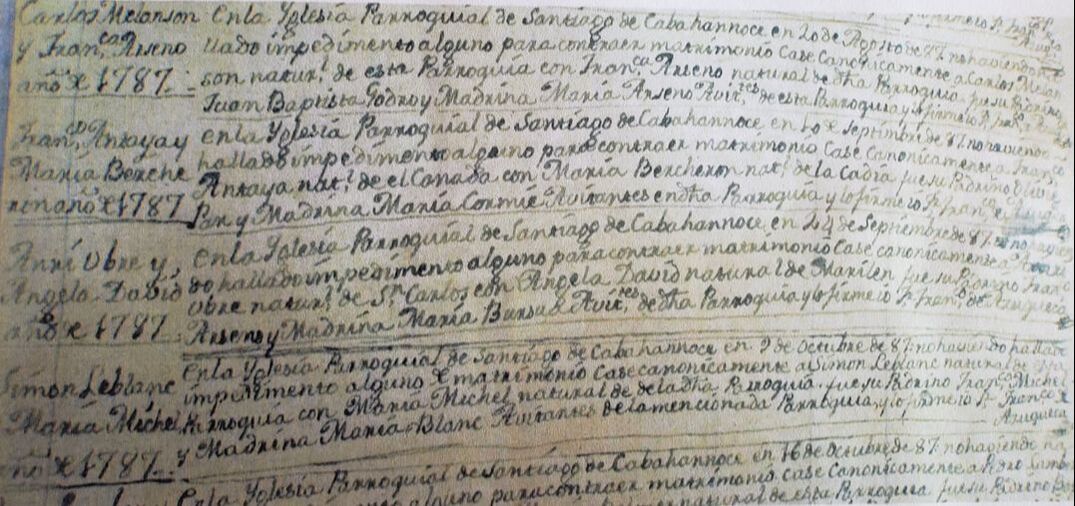 Carlos Melonson
y Fran.ca Arseno
año de 1787
En la Yglesia Parroquial de Santiago de Cabahannoce en 20 de Agosto de 87 no haviendo
llado impedimento alguno para contraer matrimonio Case Canonicamente a Carlos Melan
son natur.l de esta Parroquia con Fran.ca Arseno natural de dha Parroquia fue su Padrino
Juan Baptista Godro y Madrina Maria Arseno Avit.tes de esta Parroquia y lo firmé
Fran.co Antayay
Maria Berche
ron año de 1787
en la Yglesia Parroquial de Santiago de Cabahannoce, en 10 de Septiembre de 87 no haviendo
hallado impedimento alguno para contraer matrimonio Case Canonicamente a Franco
Antaya nat.l de el Canada con Maria Bercheron nat.l de la Cadia fue su Padrino
y Madrina Maria Cormie Avitantes en dha Parroquia y lo firmé
Anri Obre y
Angela David
año de 1787
en la Yglesia Parroquial de Santiago de Cabahannoce en 24 de Septiembre de 87 no
do hallado impedimento alguno para contraer matrimonio Case canonicamente a Anri
Obre natur.l de S.n Carlos con Angela David natural de Marilen fue su Padrino Franco
Arseno y Madrina Maria Avit.tes de dha Parroquia y lo firmé
Simon Leblanc
Maria Michel
año de 1787
en la Yglesia Parroquial de Santiago de Cabahannoce en 9 de Octubre de 87 no haviendo hallado
impedimento alguno de matrimonio Case canonicamente a Simon Leblanc natural de
Parroquia con Maria Michel natural de de la dha Parroquia fue su Padrino Fran.co Michel
y Madrina Maria Blanc Avitantes de la mencionada Parroquia, y lo firmé
en la Yglesia Parroquial de Santiago de Cabahannoce en 16 de Octubre de 87 no haviendo
alguno para contraer matrimonio Case Canonicamente a Pedro
natural de esta Parroquia fue su Padrino